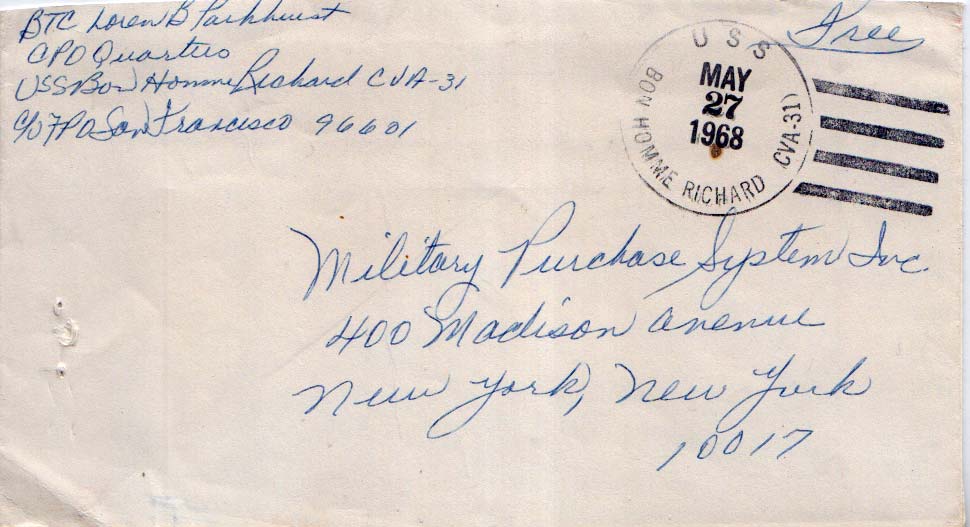 BTC Loren B Parkhurst
CPO Quarters
USS Bon Homme Richard CVA-31
c/o FPO San Francisco 96601
Free
USS
BON HOMME RICHARD (CVA-31)
MAY
27
1968
Military Purchase System Inc.
400 Madison Avenue
New York, New York
10017